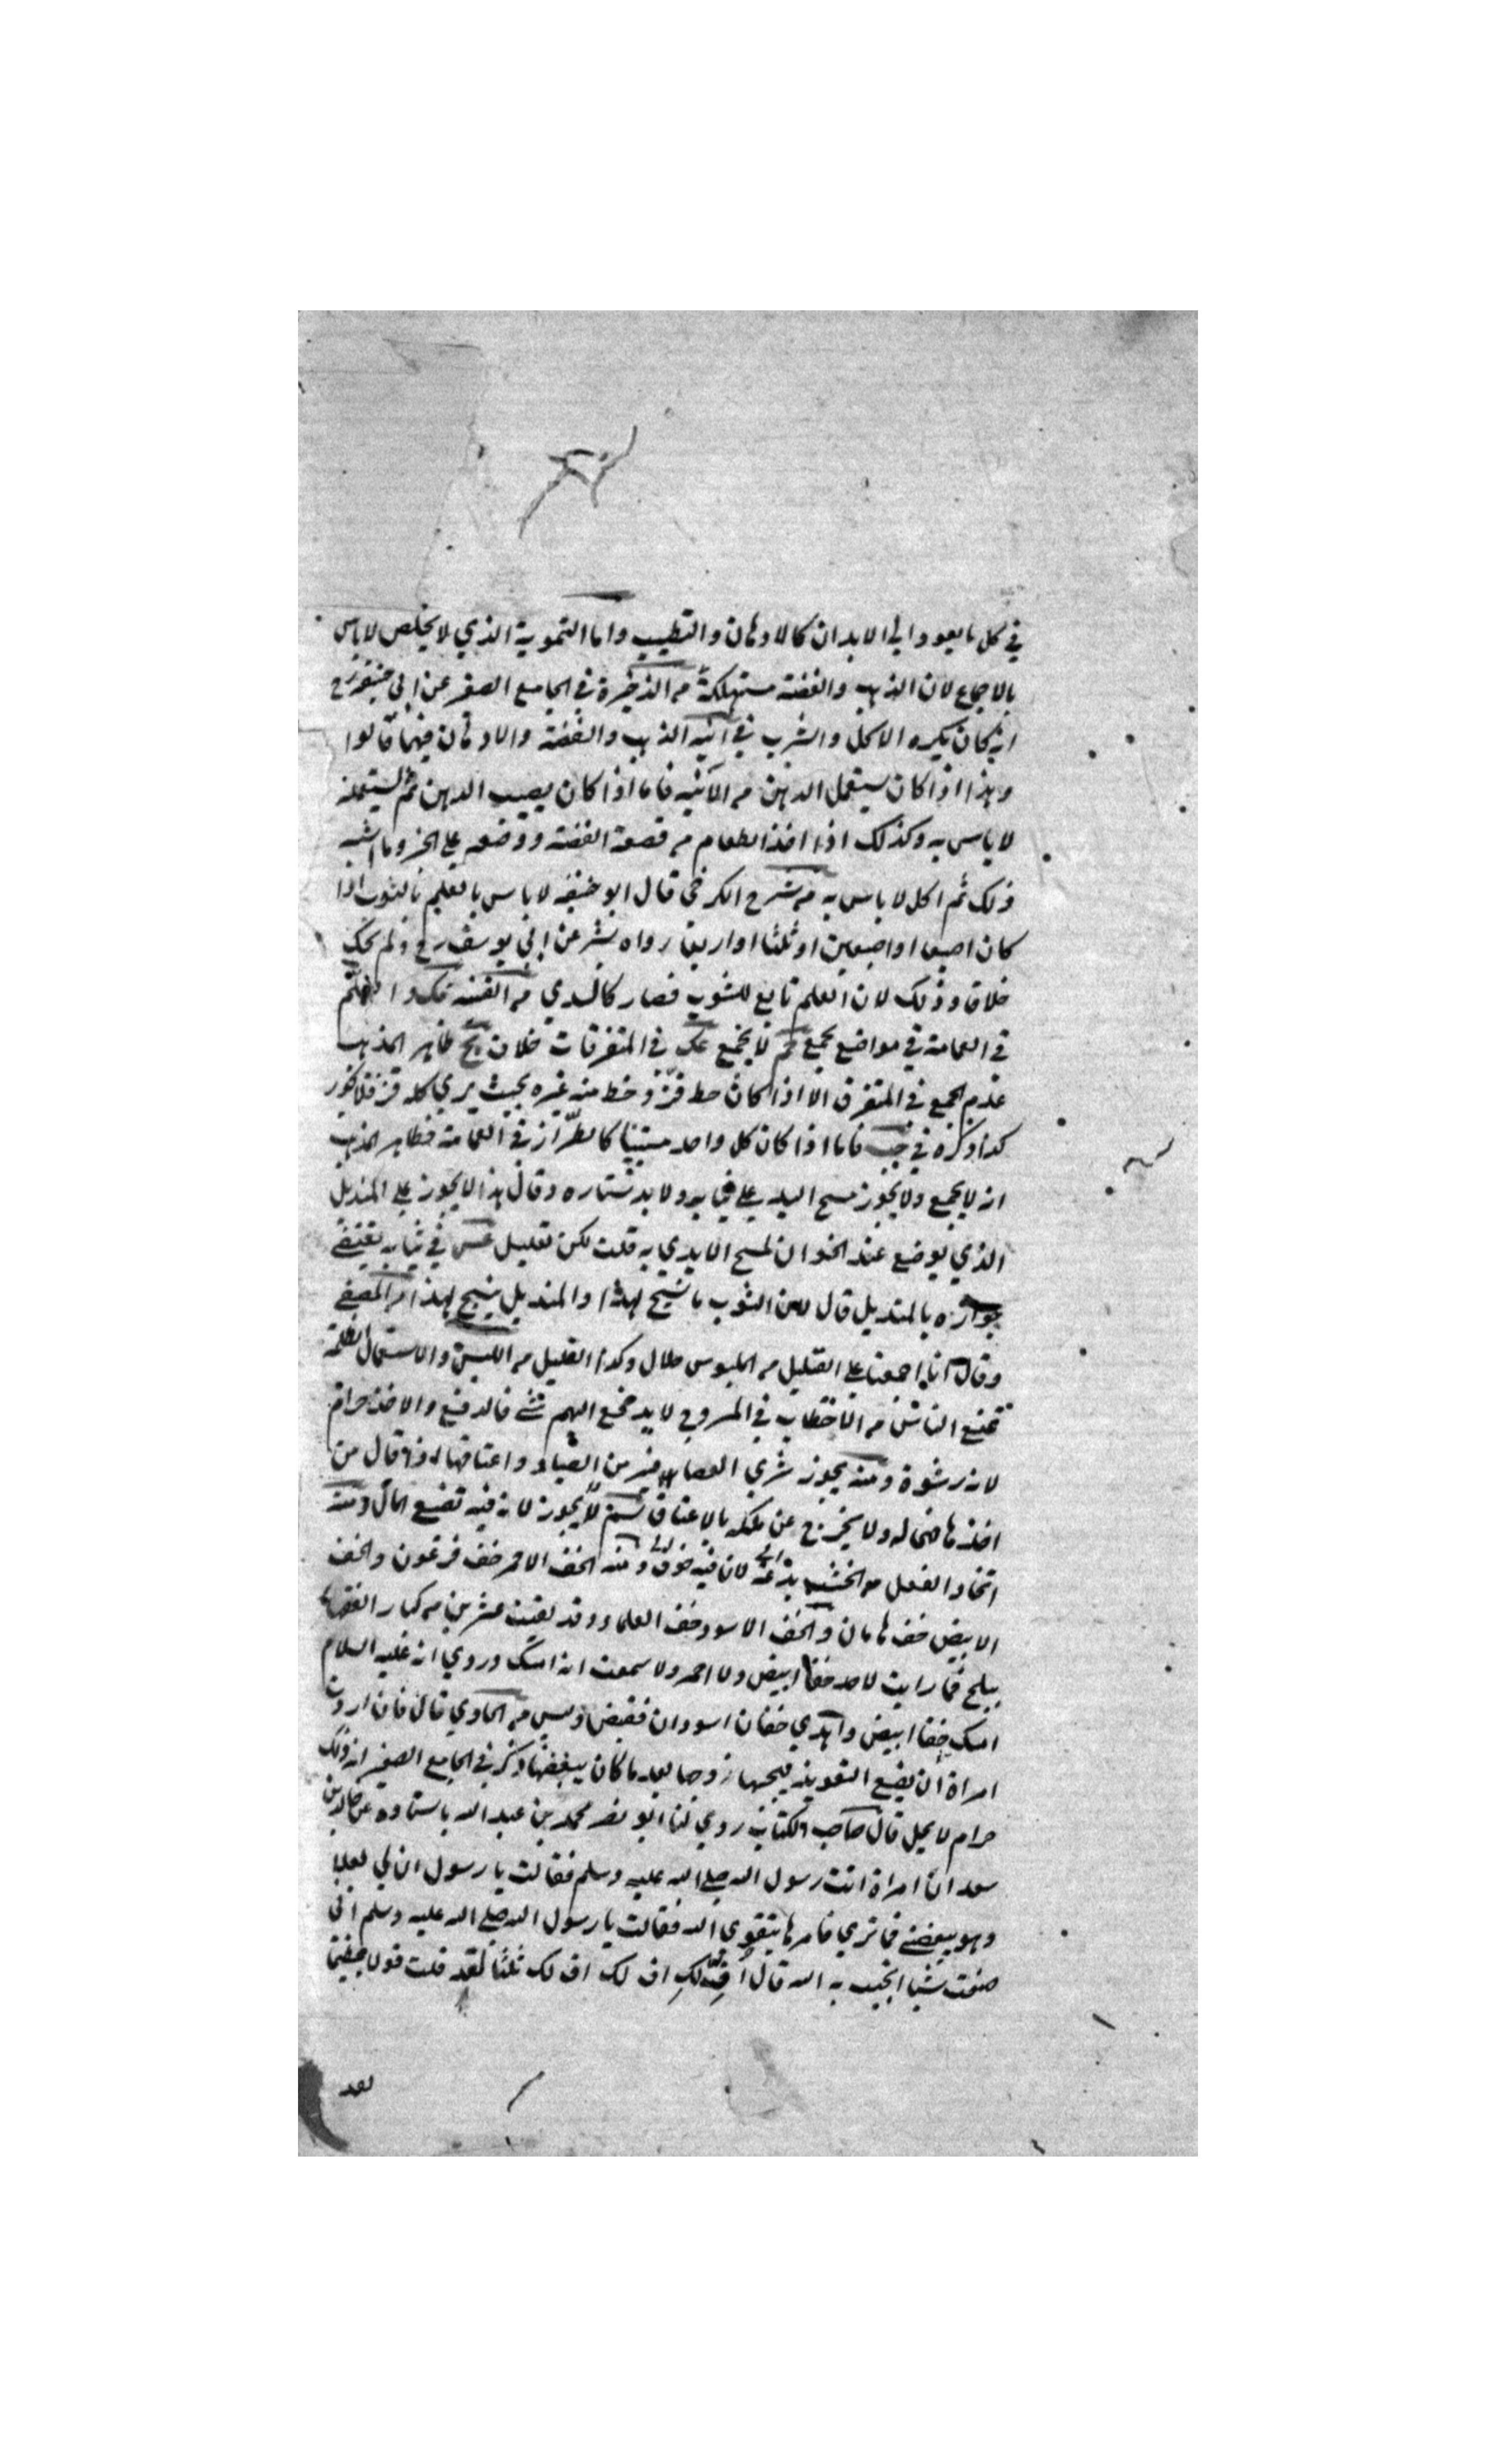 في كل ما يعود الى الابدان كالادهان والتطيب واما التمويه الذي لا يخلص لا باس
بالاجماع لان الذهب والفضة مستهلكة من الذخيرة في الجامع الصغير عن ابي حنيفة رح
انه كان يكره الاكل والشرب في آنية الذهب والفضة والادهان فيهما قالوا
وهذا اذا كان يستعمل الدهن من الآنية فاما اذا كان يصيب الدهن ثم يستعمله
لا باس به وكذلك اذا اخذ الطعام من قصعة الفضة ووضعه على الخبز وما اشبه
ذلك ثم اكل لا باس به من شرح الكرخي قال ابو حنيفه لا باس بالعلم بالثوب اذا
كان اصبعا او اصبعين او ثلثا او اربعا رواه بشر عن ابي يوسف رح ولم يحك
خلافا وذلك لان العلم تابع للثوب فصار كالسدي من القنية
في العمامة في مواضع يجمع لا يجمع في المتفرقات خلاف ظاهر المذهب
عدم الجمع في المتفرق الا اذا كان خط قز وخط منه غيره بحيث يري كله قز فلا يجوز
كذا ذكره في فاما اذا كان كل واحد مستبينا كالطراز في العمامة فظاهر المذهب
انه لا يجمع ولا يجوز مسح اليد على ثيابه ولا بدستاره وقال هذا لا يجوز على المنديل
الذي يوضع عند الخوان لمسح الايدي به قلت لكن تعليل في ثيابه يقتضي
جوازه بالمنديل قال لان الثوب ما نسج لهذا والمنديل ينسج لهذا من المصفى
وقال انا اجمعنا على القليل من الملبوس حلال وكذا القليل من اللبس والاستعمال الظلمة
تمنع الناس من الاحتطاب في المروج لا يدفع اليهم شئ فالدفع والاخذ حرام
لانه رشوة ومنه يجوز شري العصافير من الصياد واعتاقها اذا قال من
اخذها فهي له ولا يخرج عن ملكه بالاعتاق لا يجوز لانه فيه تضيع المال ومنه
اتخاذ النعل من الخشب بدعة لان فيه ومنه الخف الاحمر خف فرعون والخف
الابيض خف هامان والخف الاسود خف العلماء وقد لقيت عشرين من كبار الفقهاء
ببلخ فما رايت لاحد خفا ابيض ولا احمر ولا سمعت انه امسك وروي انه عليه السلام
امسك خفا ابيض واهدي خفان اسودان فقبض ولبس من الحاوي قال فان ارادت
امراة ان يضع التعويذ ليحبها زوجها بعد ما كان يبغضها ذكر في الجامع الصغير ان ذلك
حرام لا يحل قال صاحب الكتاب روي لنا ابو نصر محمد بن عبد الله باسناده عن خالد بن
سعد ان امراة اتت رسول الله صلى الله عليه وسلم فقالت يا رسول ان لي بعلا
وهو يبغضني فما تري فامرها بتقوى الله فقالت يا رسول الله صلى الله عليه وسلم اني
صنعت شيئا اتحبب به اليه قال اف لك اف لك اف لك ثلثا لقد قلت قولا
لقد